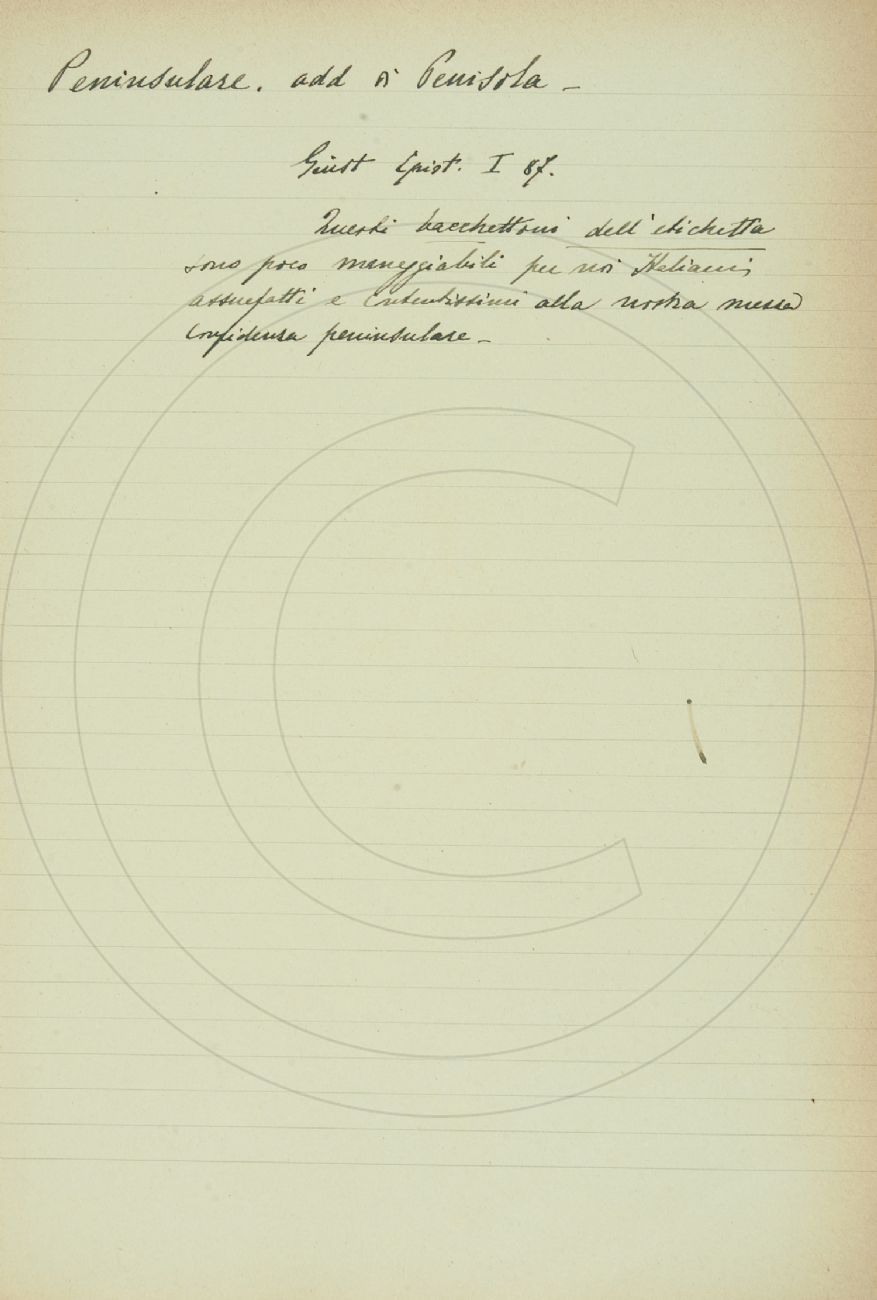 Peninsulare. add di Penisola –
Giust Epist. I 87.
Questi bacchettoni dell'etichetta
sono poco maneggiabili per noi Italiani,
assuefatti e contentissimi alla nostra messa
confidenza peninsulare –